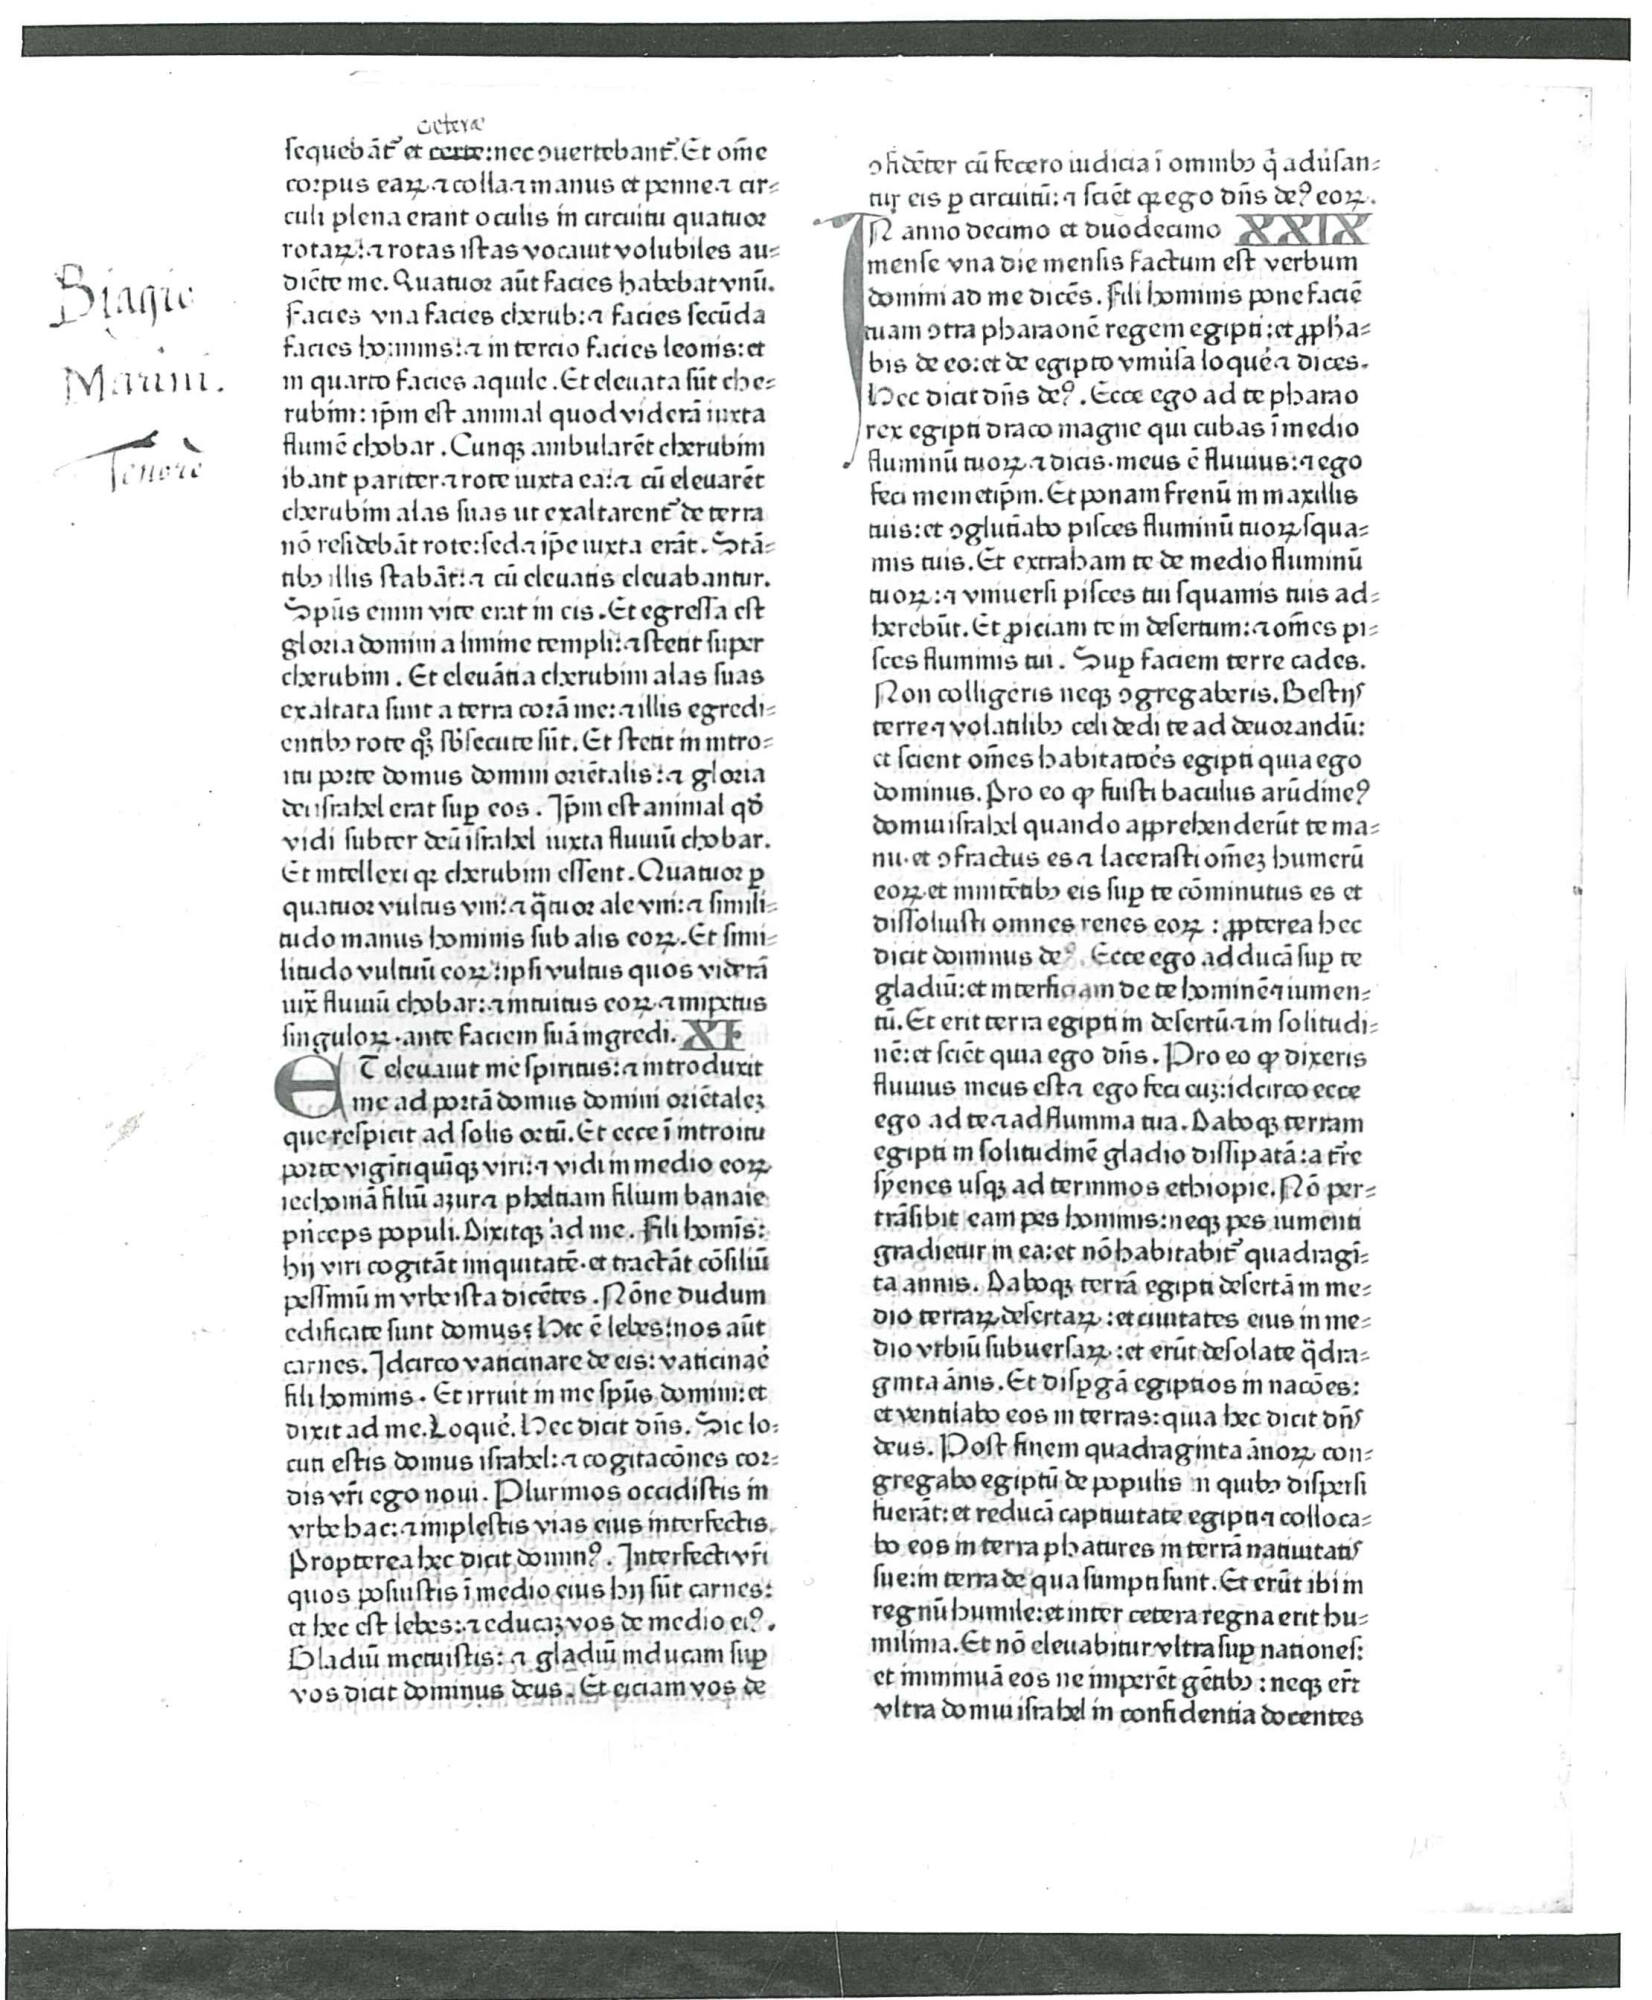 ceterae
sequebāt᷑ et certe: nec ꝯuertebant᷑. Et om̄e
corpus eaꝝ ⁊ colla ⁊ manus et penne ⁊ cir⸗
culi plena erant oculis in circuitu quatuor
rotaꝝ: ⁊ rotas istas vocauit volubiles au⸗
diēte me. Quatuor aūt facies habebat vnū.
Facies vna facies cherub: ⁊ facies secūda
facies hominis: ⁊ in tercio facies leonis: et
in quarto facies aquile. Et eleuata sūt che⸗
rubim: ip̄m est animal quod viderā iuxta
flumē chobar. Cunqꝫ ambularēt cherubim
ibant pariter ⁊ rote iuxta ea: ⁊ cū eleuarēt
cherubim alas suas ut exaltarent᷑ de terra
nō residebāt rote: sed ⁊ ip̄e iuxta erāt. Stā⸗
tibꝰ illis stabāt: ⁊ cū eleuatis eleuabantur.
Sp̄us enim vite erat in eis. Et egressa est
gloria domini a limine templi: ⁊ stetit super
cherubim. Et eleuātia cherubim alas suas
exaltata sunt a terra corā me: ⁊ illis egredi⸗
entibꝰ rote qͦꝫ sb̄secute sūt. Et stetit in intro⸗
itu porte domus domini oriētalis: ⁊ gloria
dei israhel erat suꝑ eos. Ip̄m est animal qđ
vidi subter deū israhel iuxta fluuiū chobar.
Et intellexi qꝛ cherubim essent. Quatuor ꝑ
quatuor vultus vni: ⁊ q̄tuor ale vni: ⁊ simili⸗
tudo manus hominis sub alis eoꝝ. Et simi⸗
litudo vultuū eoꝝ: ipsi vultus quos viderā
iux̄ fluuiū chobar: ⁊ intuitus eoꝝ ⁊ impetus
singuloꝝ ante faciem suā ingredi. XI
ET eleuauit me spiritus: ⁊ introduxit
me ad portā domus domini oriētaleꝫ
que respicit ad solis ortū. Et ecce ī introitu
porte vigīti quīqꝫ viri: ⁊ vidi in medio eoꝝ
iechoniā filiū azur ⁊ pheltiam filium banaie
pn̄ceps populi. Dixitqꝫ ad me. Fili homīs:
hij viri cogitāt iniquitatē et tractāt cōsiliū
pessimū in vrbe ista dicētes. Nōne dudum
edificate sunt domus: Hec ē lebes: nos aūt
carnes. Idcirco vaticinare de eis: vaticinar̄
fili hominis. Et irruit in me sp̄us domini: et
dixit ad me. Loquer̄. Hec dicit dn̄s. Sic lo⸗
cuti estis domus israhel: ⁊ cogitacōnes cor⸗
dis vr̄i ego noui. Plurimos occidistis in
vrbe hac: ⁊ implestis vias eius interfectis.
Propterea hec dicit domin9. Interfecti vr̄i
quos posuistis ī medio eius hij sūt carnes:
et hec est lebes: ⁊ educaꝫ vos de medio ei9.
Gladiū metuistis: ⁊ gladiū inducam suꝑ
vos dicit dominus deus. Et eiciam vos de
Biagio
Marini.
Tenore
ꝯfidēter cū fecero iudicia ī omnibꝰ q̄ aduīsan⸗
tur eis ꝑ circuitū: ⁊ sciēt qꝛ ego dn̄s de9 eoꝝ.
IN anno decimo et duodecimo XXIX
mense vna die mensis factum est verbum
domini ad me dicēs. Fili hominis pone faciē
tuam ꝯtra pharaonē regem egipti: et ꝓpha⸗
bis de eo: et de egipto vniūsa loquer̄ ⁊ dices.
Hec dicit dn̄s de9. Ecce ego ad te pharao
rex egipti draco magne qui cubas ī medio
fluminū tuoꝝ ⁊ dicis. meus ē fluuius: ⁊ ego
feci memetip̄m. Et ponam frenū in maxillis
tuis: et ꝯglutīabo pisces fluminū tuoꝝ squa⸗
mis tuis. Et extraham te de medio fluminū
tuoꝝ: ⁊ vniuersi pisces tui squamis tuis ad⸗
herebūt. Et ꝓiciam te in desertum: ⁊ om̄es pi⸗
sces fluminis tui. Suꝑ faciem terre cades.
Non colligeris neqꝫ ꝯgregaberis. Bestijs
terre ⁊ volatilibꝰ celi dedi te ad deuorandū:
et scient om̄es habitator̄es egipti quia ego
dominus. Pro eo ꝙ fuisti baculus arūdine9
domui israhel quando apprehenderūt te ma⸗
nu. et ꝯfractus es ⁊ lacerasti om̄eꝫ humerū
eoꝝ. et innitētibꝰ eis suꝑ te cōminutus es et
dissoluisti omnes renes eoꝝ: ꝓpterea hec
dicit dominus de9. Ecce ego adducā suꝑ te
gladiū: et interficiam de te hominē ⁊ iumen⸗
tū. Et erit terra egipti in desertū ⁊ in solitudi⸗
nē: et sciēt quia ego dn̄s. Pro eo ꝙ dixeris
fluuius meus est ⁊ ego feci euꝫ: idcirco ecce
ego ad te ⁊ ad flumina tua. Daboqꝫ terram
egipti in solitudinē gladio dissipatā: a tr̄re
syenes usqꝫ ad terminos ethiopie. Nō per⸗
trāsibit eam pes hominis: neqꝫ pes iumenti
gradietur in ea: et nō habitabit᷑ quadragī⸗
ta annis. Daboqꝫ terrā egipti desertā in me⸗
dio terraꝝ desertaꝝ: et ciuitates eius in me⸗
dio vrbiū subuersaꝝ: et erūt desolate q̄dra⸗
ginta ānis. Et disꝑgā egiptios in nacōes:
et ventilabo eos in terras: quia hec dicit dn̄s
deus. Post finem quadraginta ānoꝝ con⸗
gregabo egiptū de populis in quibꝰ dispersi
fuerāt: et reducā captiuitatē egipti ⁊ colloca⸗
bo eos in terra phatures in terrā natiuitatis
sue: in terra de qua sumpti sunt. Et erūt ibi in
regnū humile: et inter cetera regna erit hu⸗
milima. Et nō eleuabitur vltra suꝑ nationes:
et imminuā eos ne imperēt gētibꝰ: neqꝫ er̄t
vltra domui israhel in confidentia docentes